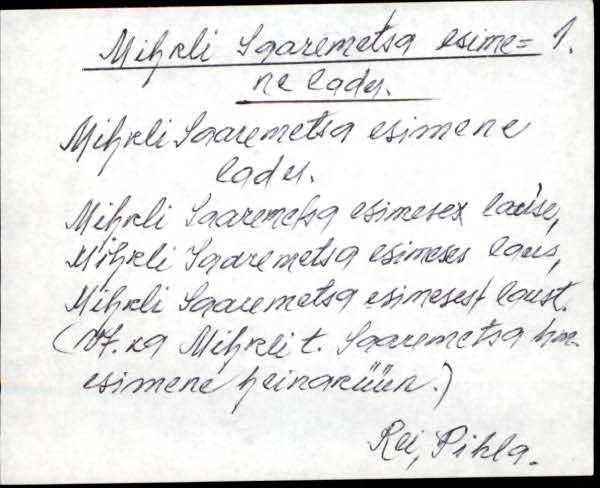 Mihkli Saaremetsa esime= 1.
ne ladu.
Mihkli Saaremetsa esimene
ladu.
Mihkli Saaremetsa esimesex lause,
Mihkli Saaremetsa esimeses laus,
Mihkli Saaremetsa esimesest laust.
(Vt. ka Mihkli t. Saaremetsa
esimene heinaküün.)
Rei, Pihla.